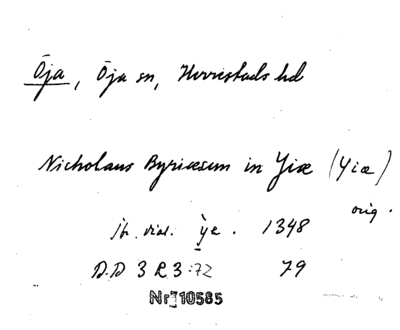 Öja, Öja sn, Herrestads hd
Nicholaus Byriæsun in Yiæ (Yiæ)
orig.
jr. dial. ỳe. 1348
D.D 3 R 3:72 79
Nr 10585